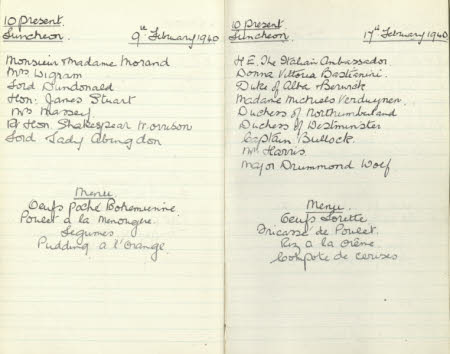 10 Present.
Luncheon. 9th February 1940
Monsieur & Madame Morand
Mrs Wigram
Lord Dundonald
Hon: James Stuart
Mrs Massey.
Rt Hon. Shakespear Morrison
Lord Lady Abingdon
Menu
Oeufs Poché Bohemienne.
Poulet à la Menongere.
Legumes
Pudding a l'Orange.
10 Present
Luncheon. 17th February 1940
H.E. The Italian Ambassador.
Donna Vittoria Bastianini.
Duke of Alba & Berwick
Madame Michiels Verduynen.
Duchess of Northumberland
Duchess of Westminster
Captain Bullock.
Mr Harris.
Major Drummond Wolf
Menu.
Oeufs Lorette
Fricasse de Poulet.
Riz a la Crême.
Compote de cerises